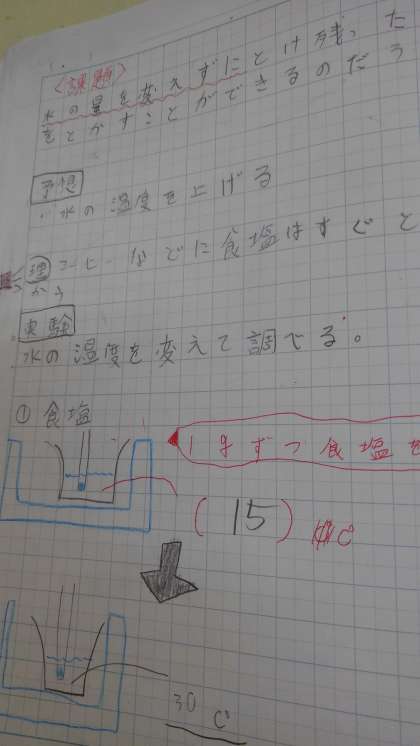 〈課題〉
水の量を変えずにとけ残った
をとかすことができるのだろ
予想
・水の温度を上げる
理 コーヒーなどに食塩はすぐと
から
実験
水の温度を変えて調べる。
① 食塩
1gずつ食塩を
(15)℃
30 ℃